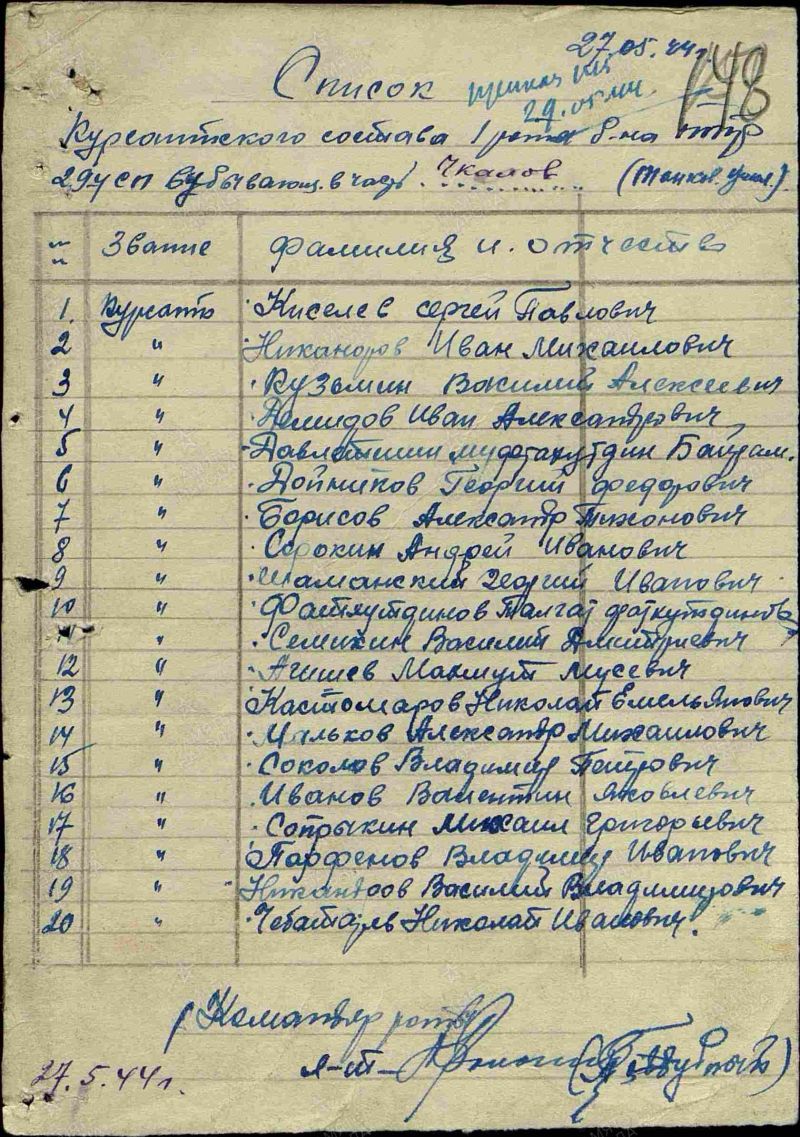 27.05.44г.
148
29.05.44
Список
Курсантского состава 1 рота 8-на птр
29 усп выбывающ. в часть Чкалов (Танков. учил.)
Звание Фамилия и. отчество
1. Курсант Киселев Сергей Павлович
2 " Никаноров Иван Михаилович
3 " Кузьмин Василий Алексеевич
4 " Демидов Иван Александрович
5 " Давлетшин Муфтахутдин Байрам.
6 " Дойников Георгий Федорович
7 " Борисов Александр Тихонович
8 " Сорокин Андрей Иванович
9 " Шаманский Георгий Иванович
10 " Фатхутдинов Талгат Фатхутдинов
11 " Семихин Василий Дмитриевич
12 " Агишев Махмут Мусевич
13 " Кастомаров Николай Емельянович
14 " Мальков Александр Михаилович
15 " Соколов Владимир Петрович
16 " Иванов Валентин Яковлевич
17 " Сопрыкин Михаил Григорьевич
18 " Парфенов Владимир Иванович
19 " Никаноров Василий Владимирович
20 " Николай Иванович.
Командир роты
л-т
27.5.44г.